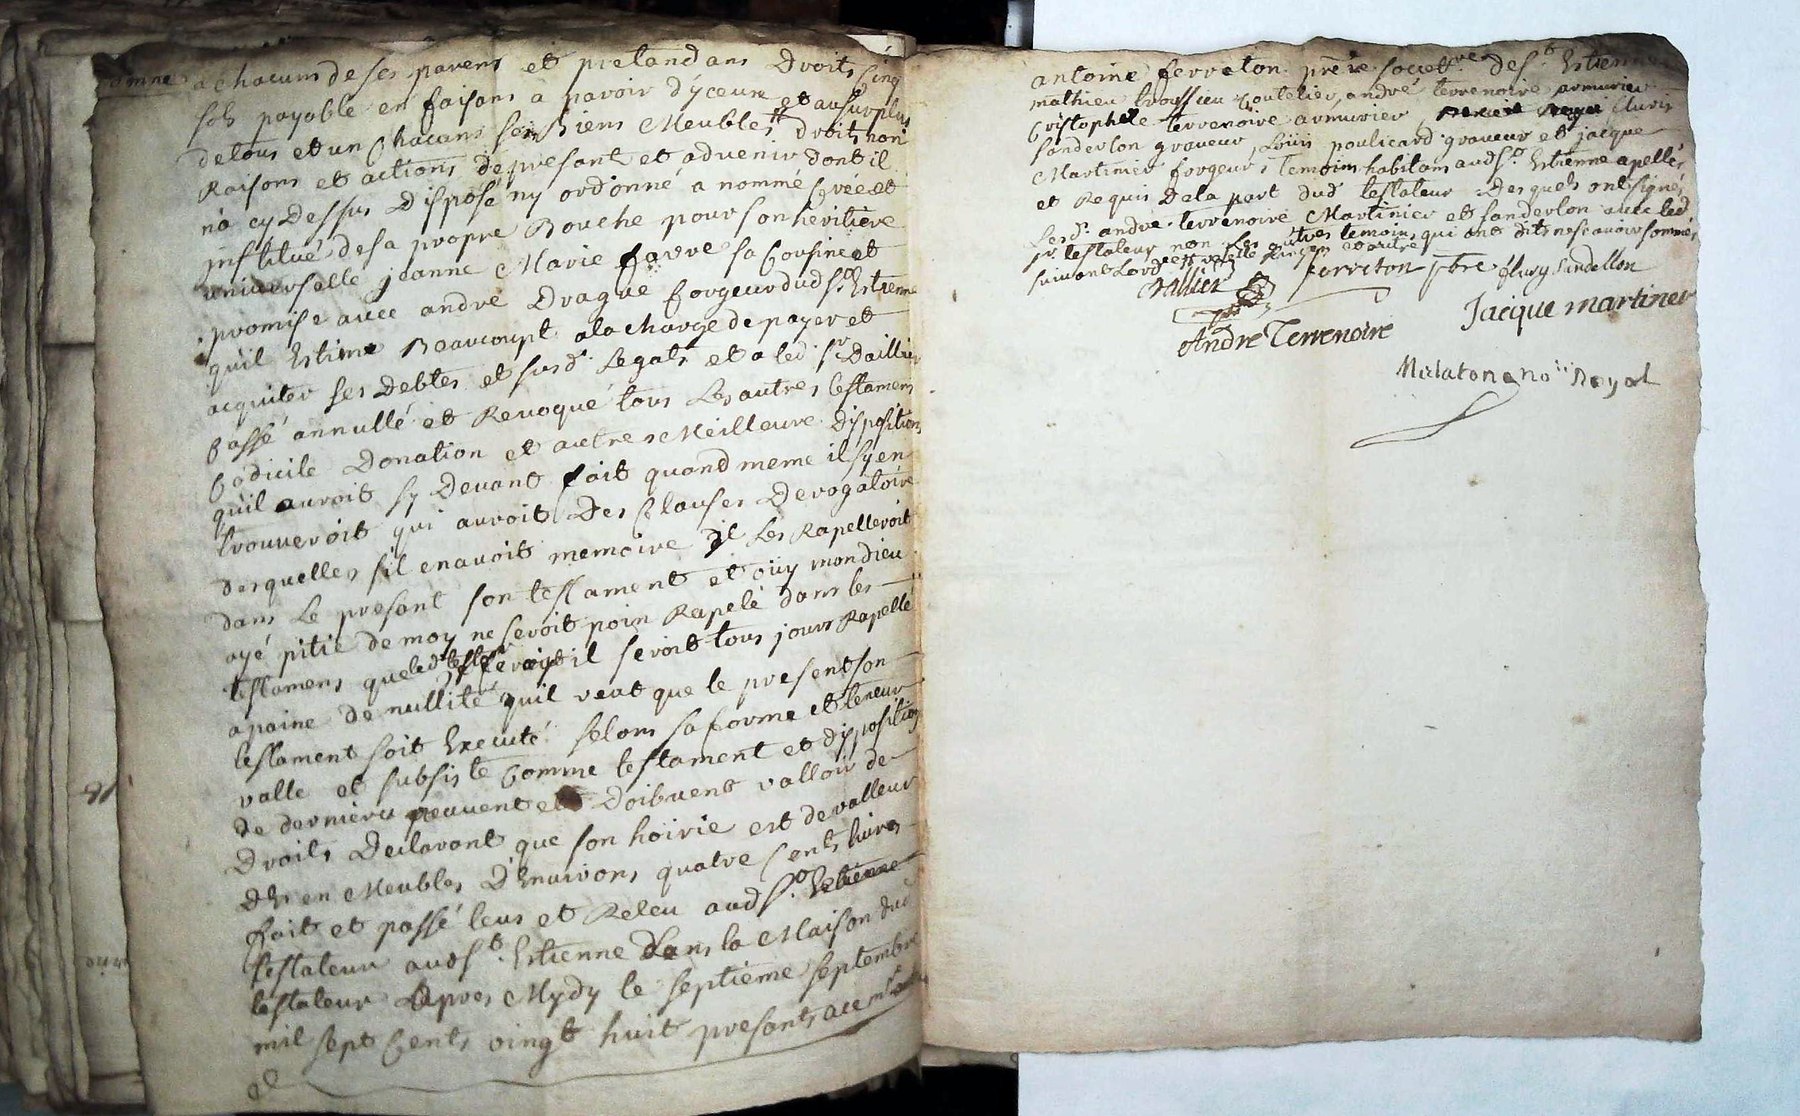 donne a chacuns de ses parens et pretandans Droits cinq
sols payable en faisans a pavoir d'yceux et au surplus
de tous et un chacuns ses Biens Meubles droits noms
Raisons et actions de presant et advenir dont il
n'a cy Dessus Disposé ny ordonné a nommé creé et
institué de sa propre Bouche pour son héritière
universelle jeanne Marie favre sa Cousine et
promise avec andré Drague forgeur dud St. Estienne
qu'il Estime Beaucoupt ala charge de payer et
acquiter ses Debtes et susd. Legats et a led. Sr Daillier
Cassé annullé et Revoqué tous Les autres testamens
Codicile Donation et autres Meilleure Disposition
qu'il auroit sy Devant fait quand meme il s'y en
trouveroit qui auroit Des Clauses Derogatoire
desquelles s'il en avoit memoire il Les Rapelleroit
dans Le presant son testament et ouy mon dieu
ayé pitié de moy ne seroit poin Rapelé dans les
testamens que led. testateur feroit il seroit tous jours Rapellé
a paine de nullité qu'il veut que le present son
testament soit Executé selons sa forme et teneur
valle et subsiste Comme testament et disposition
de derniere peuvent et Doibvent valloir de
Droits Declarant que son hoirie est de valleur
D'Es en Meubles D'Environs quatre Cents livres
fait et passé leus et Releu aud St. Estienne
testateur aud St. Estienne Dans la Maison dud
testateur Apres Mydy le septième septembre
mil sept Cents vingt huit presants a ce mr
antoine ferreton prêtre societre de St. Estienne
mathieu trossieu Coutelier, andré terrenoire armurier
Cristophle terrenoire armurier fluris
sanderlon graveur, Loüis poulicard graveur et jacque
Martinier forgeur, Temoins habitans aud St. Estienne apellés
et Requis De la part dud testateur Desquels ont signés
Les d. andré terrenoire Martinier et sanderlon avec led
sr. testateur non Les autres temoins qui ont dits ne scavoir sommés
suivant Lordce
Dallier ferreton ptre flury Sandellon
André Terrenoire Jacque martinier
Mirlaton no.re Royal